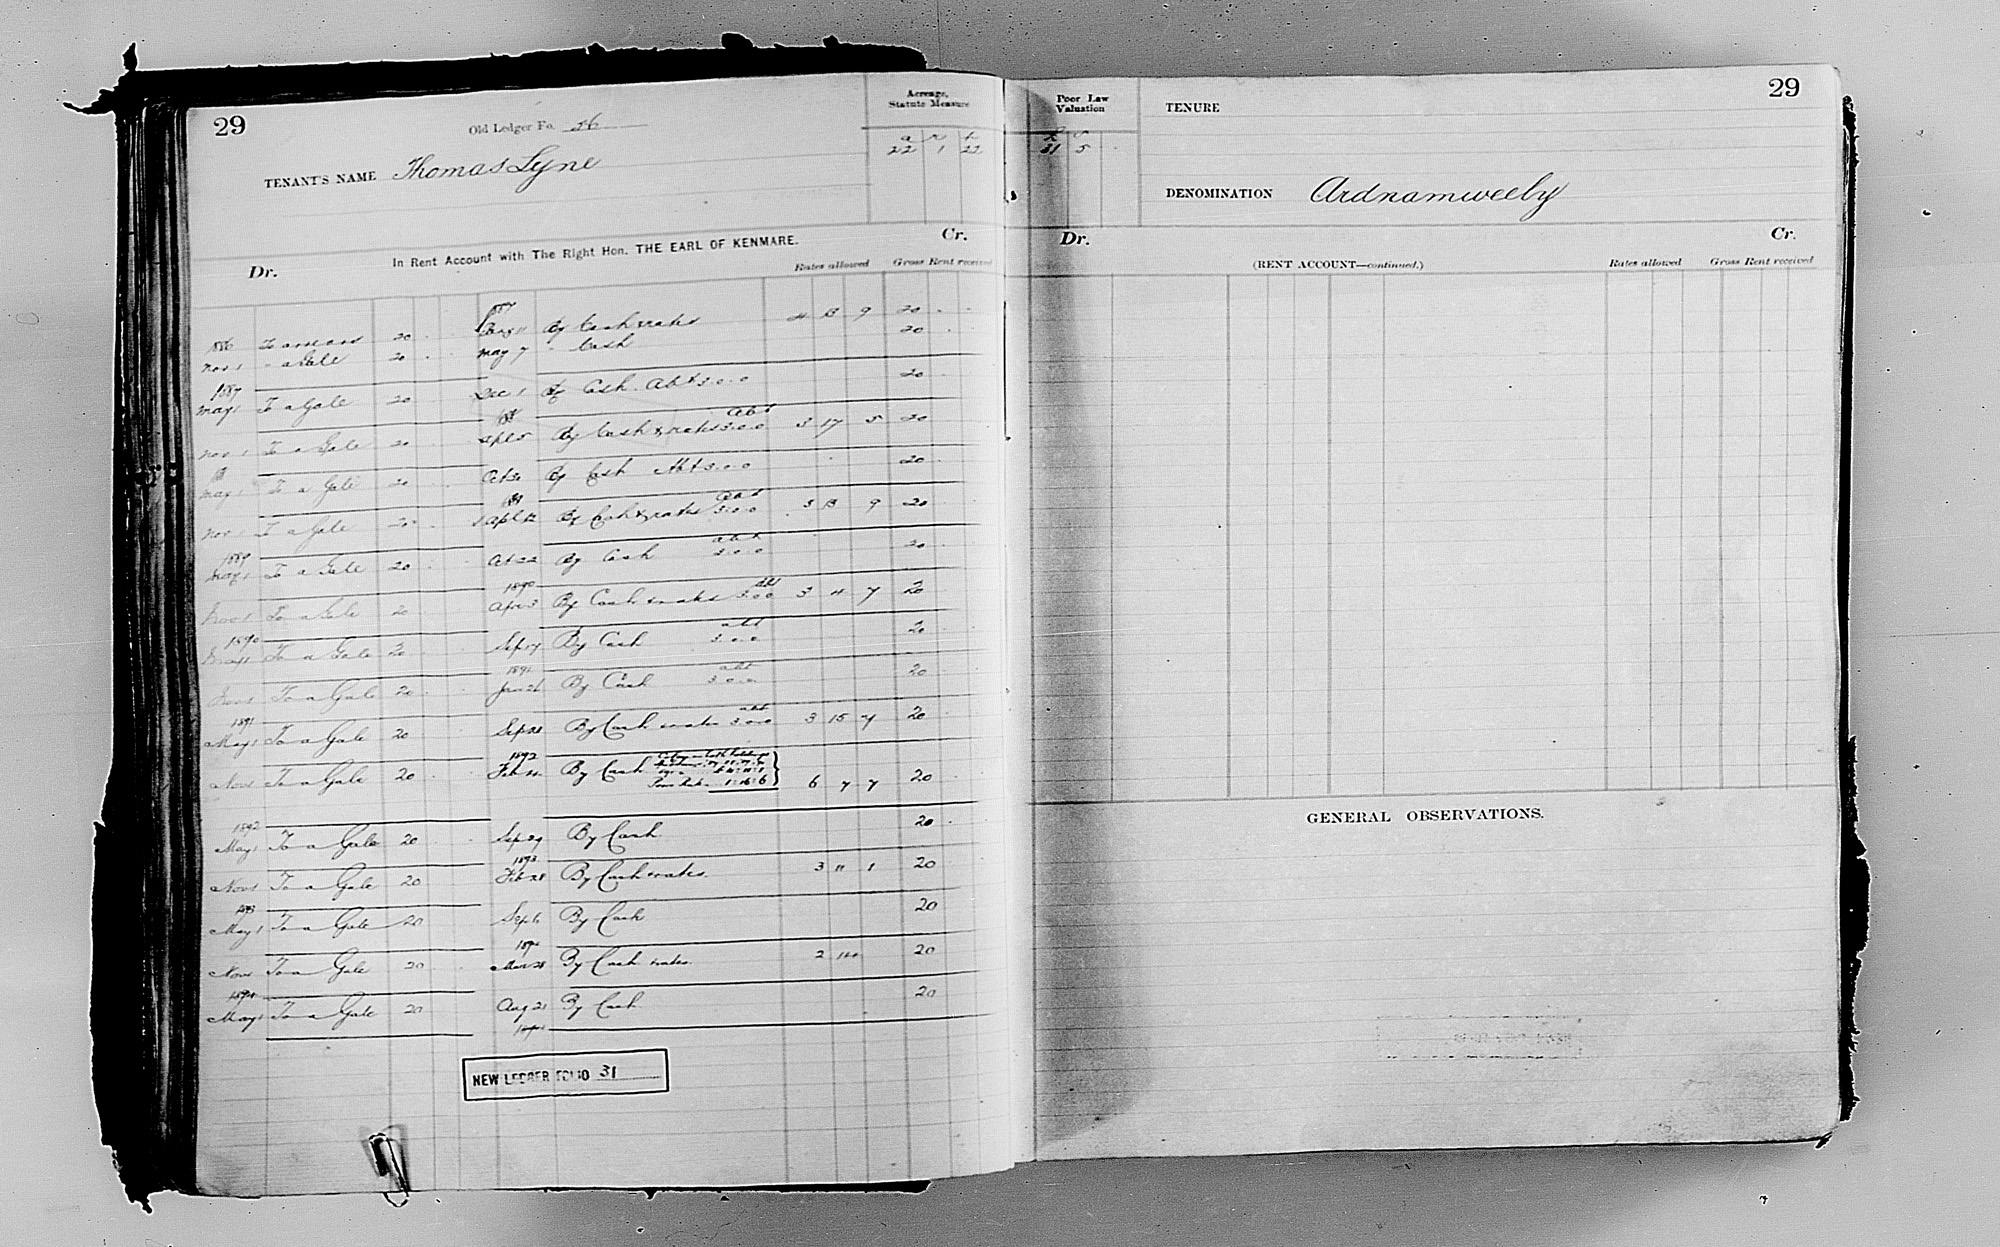 29
Old Ledger Fo. 26
Acreage, Statute Measure
a r p
22 1 22
TENANT'S NAME Thomas Lyne
In Rent Account with The Right Hon. THE EARL OF KENMARE.
Dr. Cr.
Rates allowed Gross Rent received
1886 To arrears 20 1887 By Cash & rates 4 13 9 20
Nov 1 " a Gale 20 May 7 " Cash 20
1887
May 1 To a Gale 20 Dec 1 By Cash Abt 3.0.0 20
Nov 1 To a Gale 20 Apl 5 By Cash & rates Abt 3.0.0 3 17 5 20
May 1 To a Gale 20 Oct 30 By Cash Abt 3.0.0 20
Nov 1 To a Gale 20 Apl 12 By Cash & rates Abt 3.0.0 3 13 9 20
1889
May 1 To a Gale 20 Oct 22 By Cash abt 3.0.0 20
1890
Nov 1 To a Gale 20 Apr 3 By Cash & rates abt 3.0.0 3 4 7 20
1890
May 1 To a Gale 20 Sep 17 By Cash abt 3.0.0 20
1891
Nov 1 To a Gale 20 Jan 26 By Cash abt 3.0.0 20
1891
May 1 To a Gale 20 Sep 28 By Cash & rates abt 3.0.0 3 15 7 20
1892
Nov 1 To a Gale 20 Feb By Cash
Poor Rate 1:16:6 6 7 7 20
1892
May 1 To a Gale 20 Sep 29 By Cash 20
1893
Nov 1 To a Gale 20 Feb 28 By Cash & rates 3 11 1 20
1893
May 1 To a Gale 20 Sep 6 By Cash 20
1894
Nov 1 To a Gale 20 Mar 28 By Cash & rates 2 20
1894
May 1 To a Gale 20 Aug 21 By Cash 20
NEW LEDGER FOLIO 31
29
Poor Law Valuation
£ s
31 5
TENURE
DENOMINATION Ardnamweely
Dr. Cr.
(RENT ACCOUNT—continued.) Rates allowed Gross Rent received
GENERAL OBSERVATIONS.